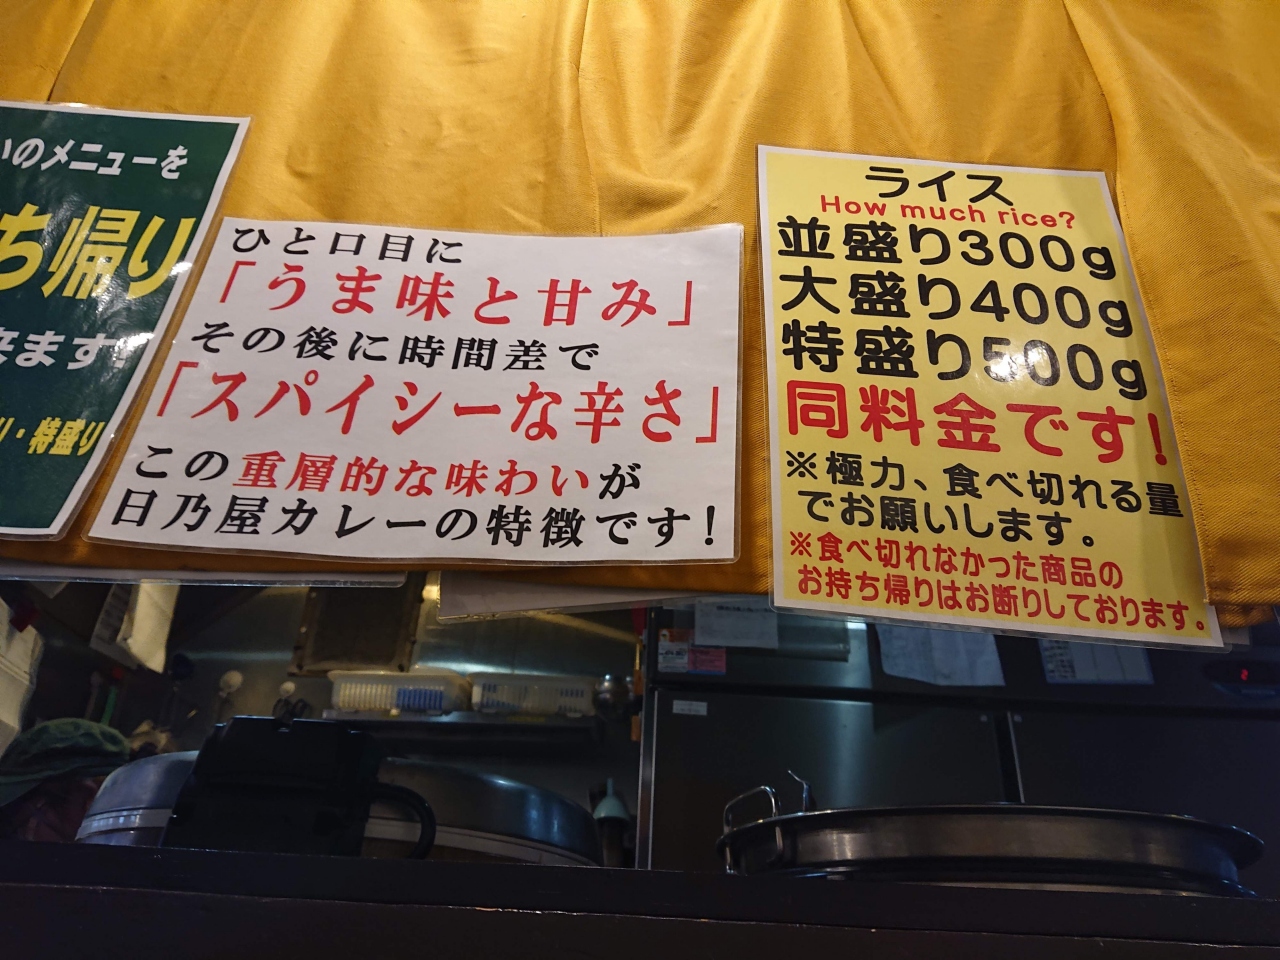 いのメニューを
ち帰り
来ます!
り・特盛り
ひと口目に
「うま味と甘み」
その後に時間差で
「スパイシーな辛さ」
この重層的な味わいが
日乃屋カレーの特徴です!
ライス
How much rice?
並盛り300g
大盛り400g
特盛り500g
同料金です!
※極力、食べ切れる量
でお願いします。
※食べ切れなかった商品の
お持ち帰りはお断りしております。